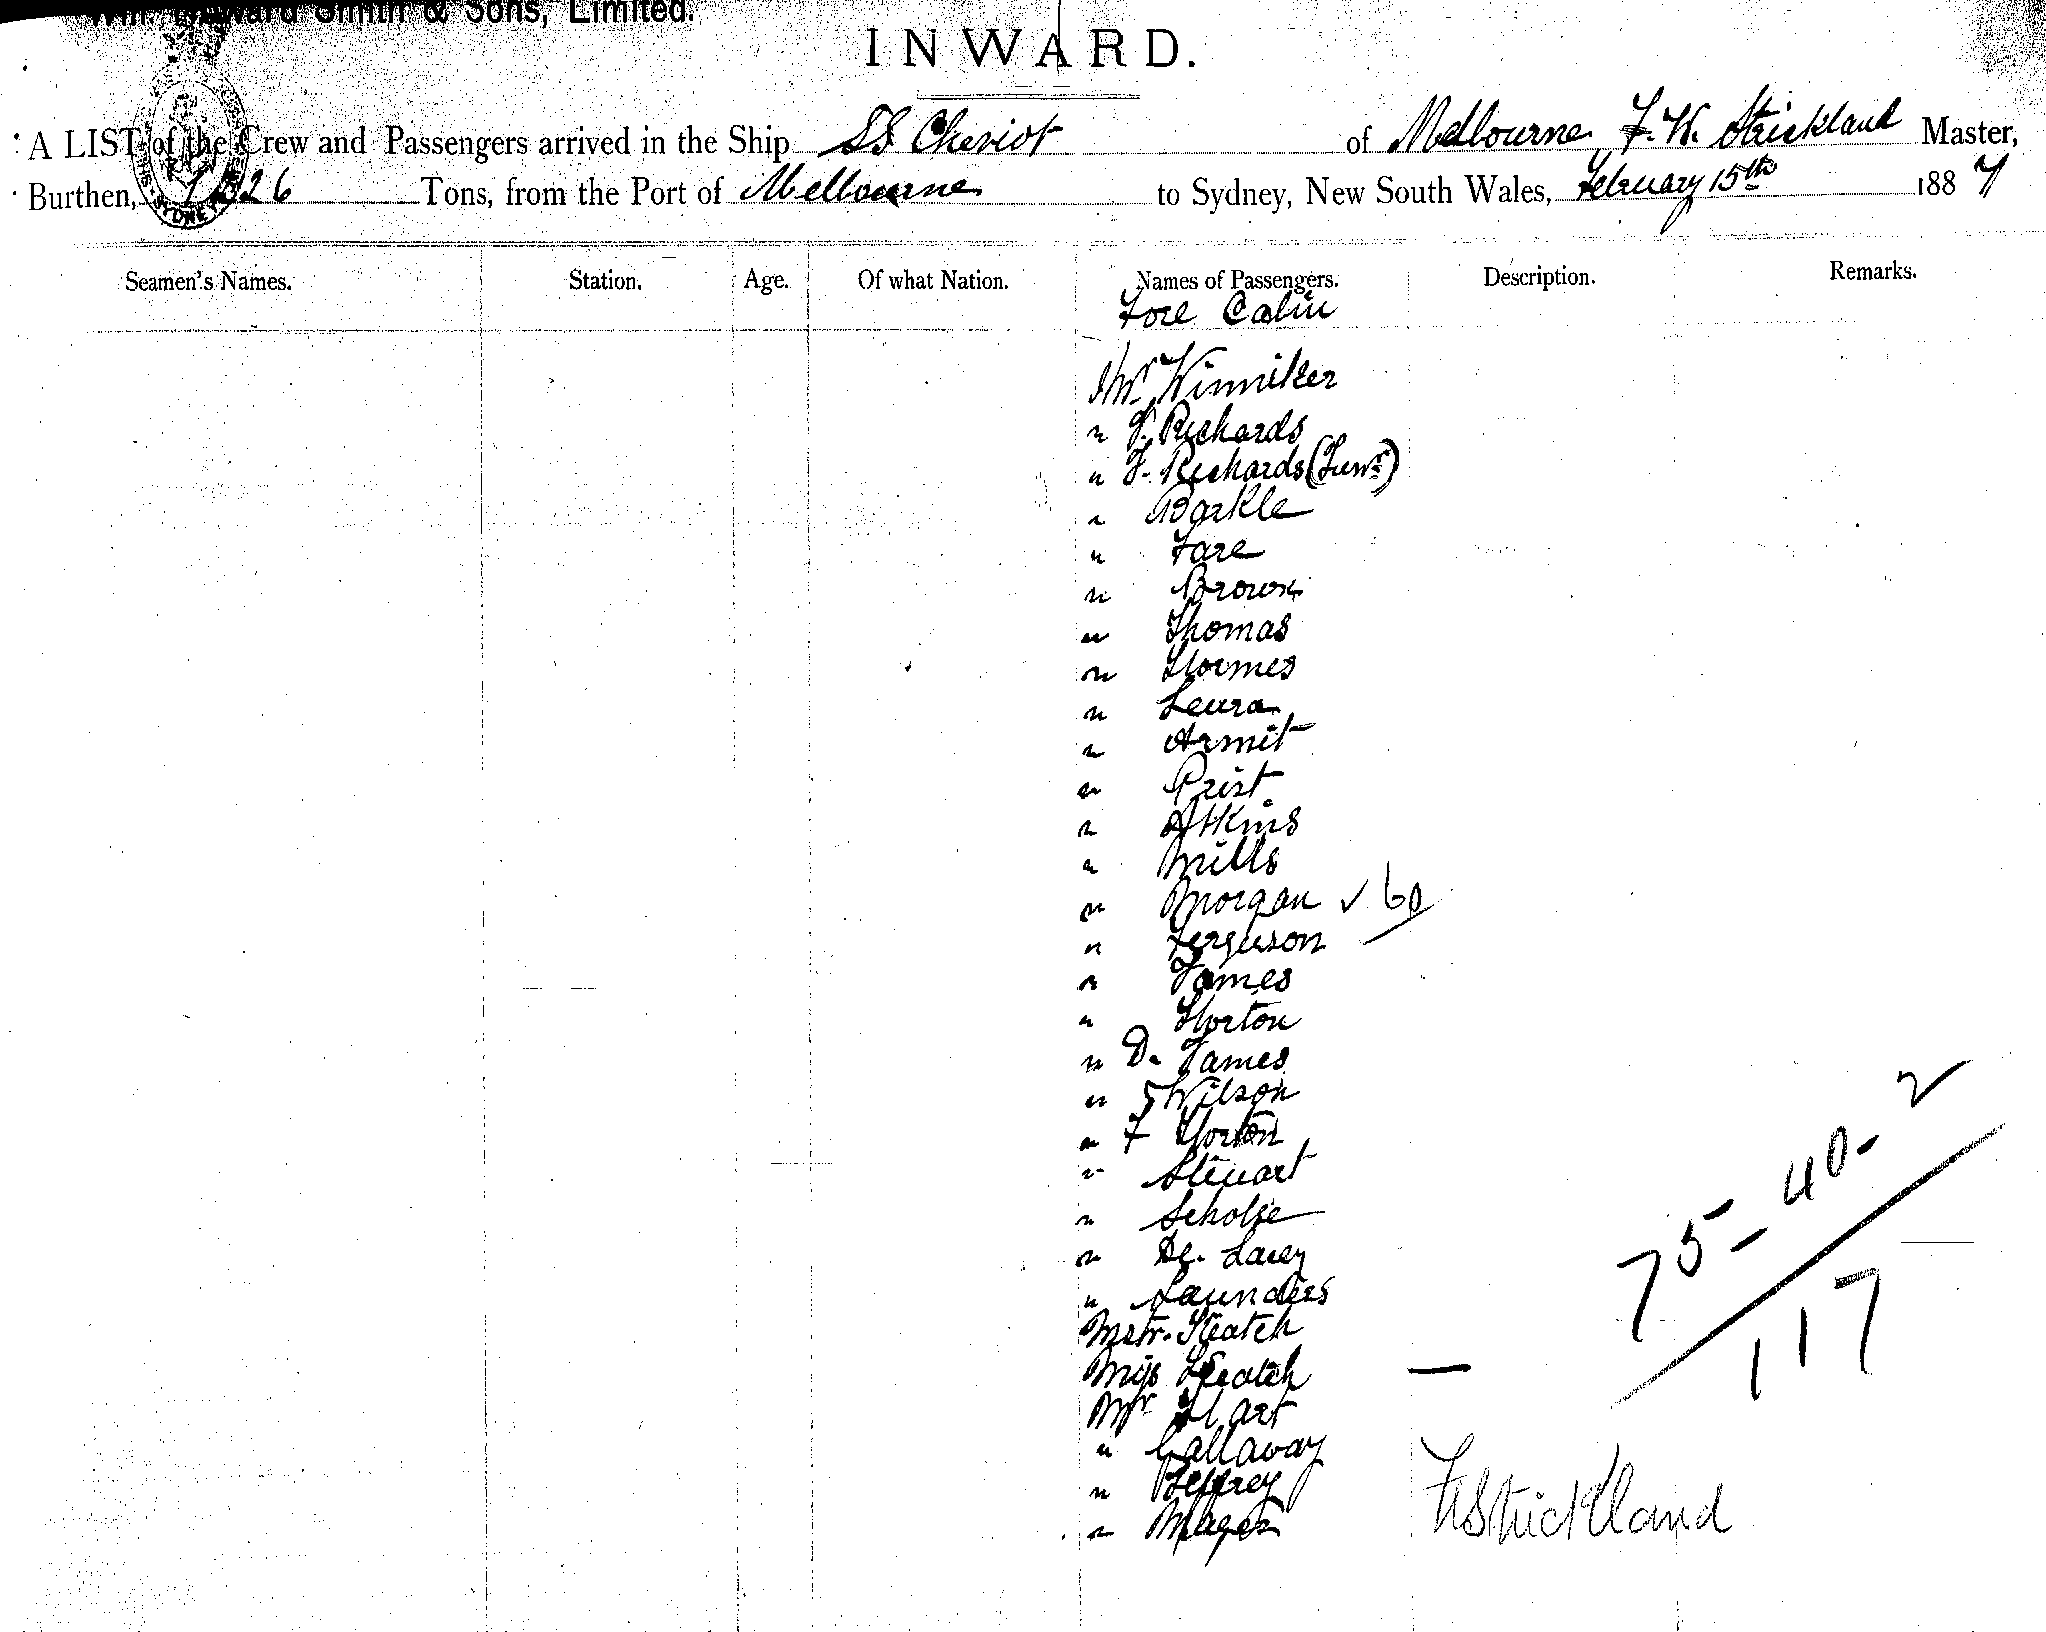 Wm. Howard Smith & Sons, Limited.
INWARD.
A LIST of the Crew and Passengers arrived in the Ship SS Cheviot of Melbourne, F. W. Strickland Master,
Burthen, 1226 Tons, from the Port of Melbourne to Sydney, New South Wales, February 15th 1887
Seamen's Names. Station. Age. Of what Nation. Names of Passengers. Description. Remarks.
Fore Cabin
Mr Winniker
" J. Richards
" F. Richards (Junr)
" Barkle
" Fare
" Brown
" Thomas
" Hormes
" Leura
" Armit
" Prist
" Atkins
" Mills
" Morgan ✓ 60
" Ferguson
" James
" Horton
" D. James
" Wilson
" F Horton
" Stewart
" Scholse
" De. Lacey
" Saunders
Mstr. Keatch
Miss Keatch
Mr Hart
" Callaway
" Jeffrey
" Mager
75-40-2
117
FWStrickland